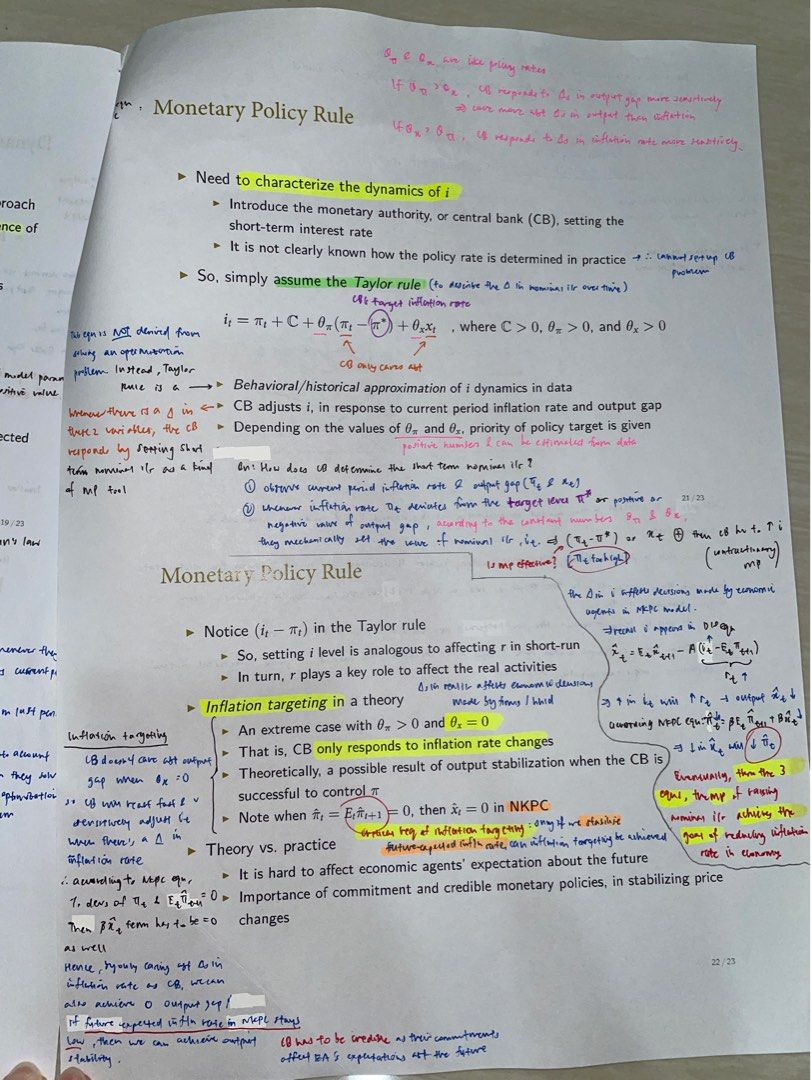 θπ & θx are like policy rates
If θπ > θx, CB responds to Δs in output gap more sensitively
⇒ care more abt Δs in output than inflation
If θx > θπ, CB responds to Δs in inflation rate more sensitively.
Monetary Policy Rule
▶ Need to characterize the dynamics of i
▶ Introduce the monetary authority, or central bank (CB), setting the
short-term interest rate
▶ It is not clearly known how the policy rate is determined in practice → ∴ cannot set up CB
problem
▶ So, simply assume the Taylor rule (to describe the Δ in nominal i/r over time)
CB's target inflation rate
i_t = π_t + ℂ + θ_π(π_t − π*) + θ_x x_t , where ℂ > 0, θ_π > 0, and θ_x > 0
CB only cares abt
This eqn is NOT derived from
solving an optimization
problem. Instead, Taylor
rule is a →
▶ Behavioral/historical approximation of i dynamics in data
▶ CB adjusts i, in response to current period inflation rate and output gap
▶ Depending on the values of θ_π and θ_x, priority of policy target is given
positive numbers & can be estimated from data
Whenever there is a Δ in
these 2 variables, the CB
responds by setting short
term nominal i/r as a kind
of MP tool
Qn: How does CB determine the short term nominal i/r?
① observe current period inflation rate & output gap (π_t & x_t)
② whenever inflation rate π_t deviates from the target level π* or positive or
negative value of output gap, according to the constant numbers θ_π & θ_x,
they mechanically set the value of nominal i/r, i_t ⇒ (π_t − π*) or x_t ⊕ then CB has to ↑ i
(contractionary
MP)
Is MP effective?
[π_t too high]
21 / 23
Monetary Policy Rule
▶ Notice (i_t − π_t) in the Taylor rule
▶ So, setting i level is analogous to affecting r in short-run
▶ In turn, r plays a key role to affect the real activities
Δs in real i/r affects economic decisions
made by firms / hhld
▶ Inflation targeting in a theory
▶ An extreme case with θ_π > 0 and θ_x = 0
▶ That is, CB only responds to inflation rate changes
▶ Theoretically, a possible result of output stabilization when the CB is
successful to control π
▶ Note when π̂_t = E_t π̂_{t+1} = 0, then x̂_t = 0 in NKPC
critical req. of inflation targeting: only if we stabilise
future expected infln rate, can inflation targeting be achieved
▶ Theory vs. practice
▶ It is hard to affect economic agents' expectation about the future
▶ Importance of commitment and credible monetary policies, in stabilizing price
changes
22 / 23
the Δ in i affects decisions made by economic
agents in NKPC model.
⇒ recall i appears in DIS eqn
x̂_t = E_t x̂_{t+1} − A(i_t − E_t π_{t+1})
r_t ↑
⇒ ↑ in i_t will ↑ r_t → output x̂_t ↓
according NKPC eqn: π̂_t = βE_t π̂_{t+1} + Bx̂_t ↓
⇒ ↓ in x̂_t will ↓ π̂_t
Eventually, thru the 3
eqns, the MP of raising
nominal i/r achieves the
goal of reducing inflation
rate in economy
Inflation targeting
CB doesn't care abt output
gap when θx = 0
so CB will react fast & v
sensitively adjust it
when there's a Δ in
inflation rate
∴ according to NKPC eqn,
if devs of π_t & E_t π̂_{t+1} = 0
Then βx̂_t term has to be = 0
as well
Hence, by only caring abt Δs in
inflation rate as CB, we can
also achieve 0 output gap!
If future expected infln rate in NKPC stays
low, then we can achieve output
stability.
CB has to be credible as their commitments
affect EA's expectations abt the future
roach
nce of
model param
sitive value
ected
19 / 23
n's law